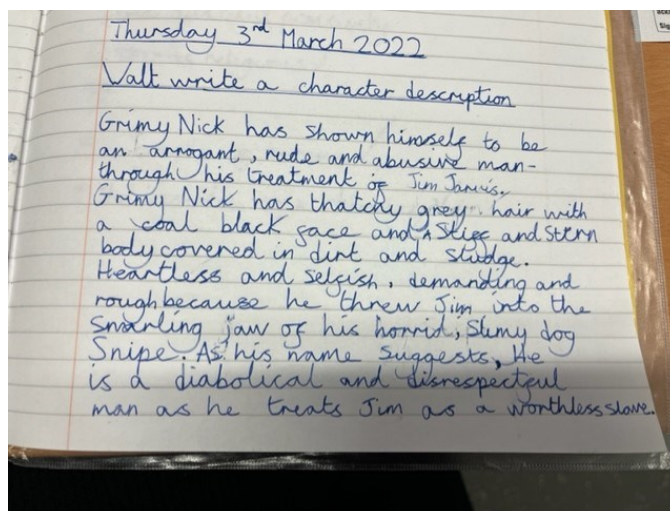 Thursday 3rd March 2022
Walt write a character description
Grimy Nick has shown himself to be
an arrogant, rude and abusive man-
through his treatment of Jim Jarvis.
Grimy Nick has thatchy grey hair with
a coal black face and a stiff and stern
body covered in dirt and sludge.
Heartless and selfish, demanding and
rough because he threw Jim into the
snarling jaw of his horrid, slimy dog
Snipe. As his name suggests, He
is a diabolical and disrespectful
man as he treats Jim as a worthless slave.